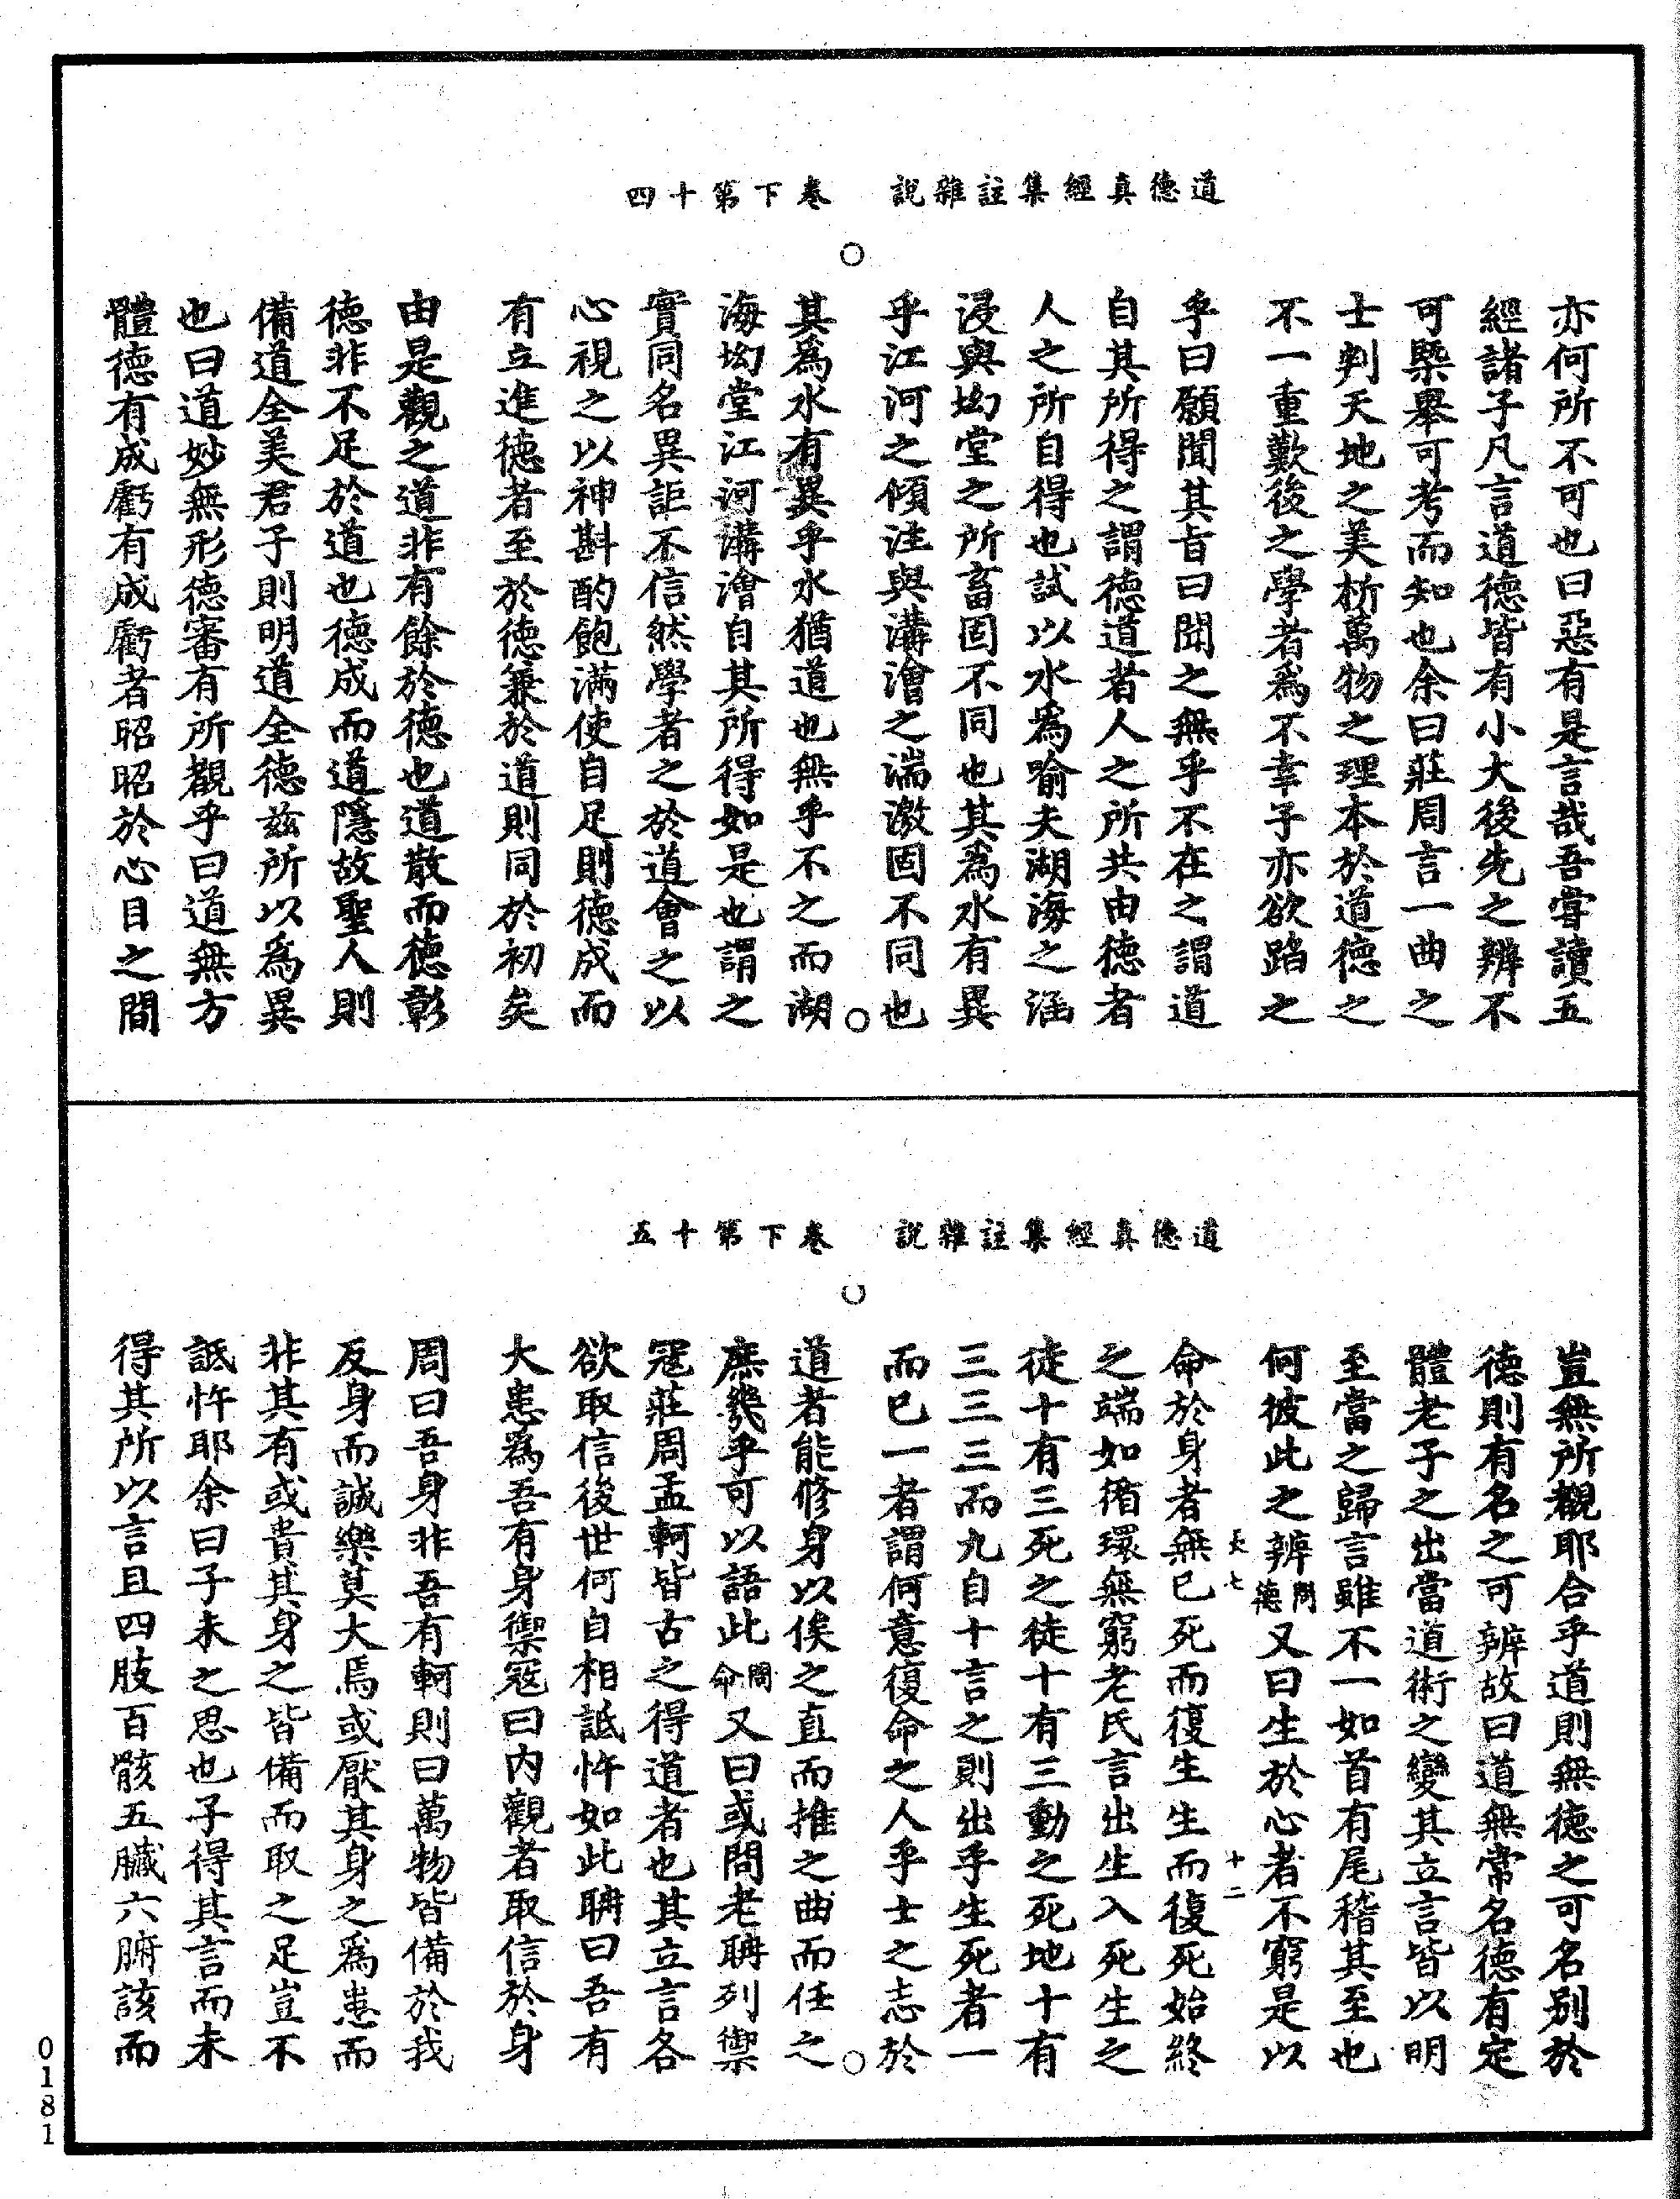 道德真經集註雜說　卷下第十四
亦何所不可也曰惡有是言哉吾嘗讀五
經諸子凡言道德皆有小大後先之辨不
可槩舉可考而知也余曰莊周言一曲之
士判天地之美析萬物之理本於道德之
不一重歎後之學者為不幸子亦欲蹈之
乎曰願聞其旨曰聞之無乎不在之謂道
自其所得之謂德道者人之所共由德者
人之所自得也試以水為喻夫湖海之涵
浸與坳堂之所畜固不同也其為水有異
乎江河之傾注與溝澮之湍激固不同也
其為水有異乎水猶道也無乎不之而湖
海坳堂江河溝澮自其所得如是也謂之
實同名異詎不信然學者之於道會之以
心視之以神斟酌飽滿使自足則德成而
有立進德者至於德兼於道則同於初矣
由是觀之道非有餘於德也道散而德彰
德非不足於道也德成而道隱故聖人則
備道全美君子則明道全德茲所以為異
也曰道妙無形德審有所觀乎曰道無方
體德有成虧有成虧者昭昭於心目之間
道德真經集註雜說　卷下第十五
豈無所觀耶合乎道則無德之可名别於
德則有名之可辨故曰道無常名德有定
體老子之出當道術之變其立言皆以明
至當之歸言雖不一如首有尾稽其至也
何彼此之辨問德又曰生於心者不窮是以
長七　十二
命於身者無已死而復生生而復死始終
之端如循環無窮老氏言出生入死生之
徒十有三死之徒十有三動之死地十有
三三三而九自十言之則出乎生死者一
而已一者謂何意復命之人乎士之志於
道者能修身以俟之直而推之曲而任之
庶幾乎可以語此問命又曰或問老聃列禦
冦莊周孟軻皆古之得道者也其立言各
欲取信後世何自相詆忤如此聃曰吾有
大患為吾有身禦冦曰内觀者取信於身
周曰吾身非吾有軻則曰萬物皆備於我
反身而誠樂莫大焉或厭其身之為患而
非其有或貴其身之皆備而取之足豈不
詆忤耶余曰子未之思也子得其言而未
得其所以言且四肢百骸五臟六腑該而
0181